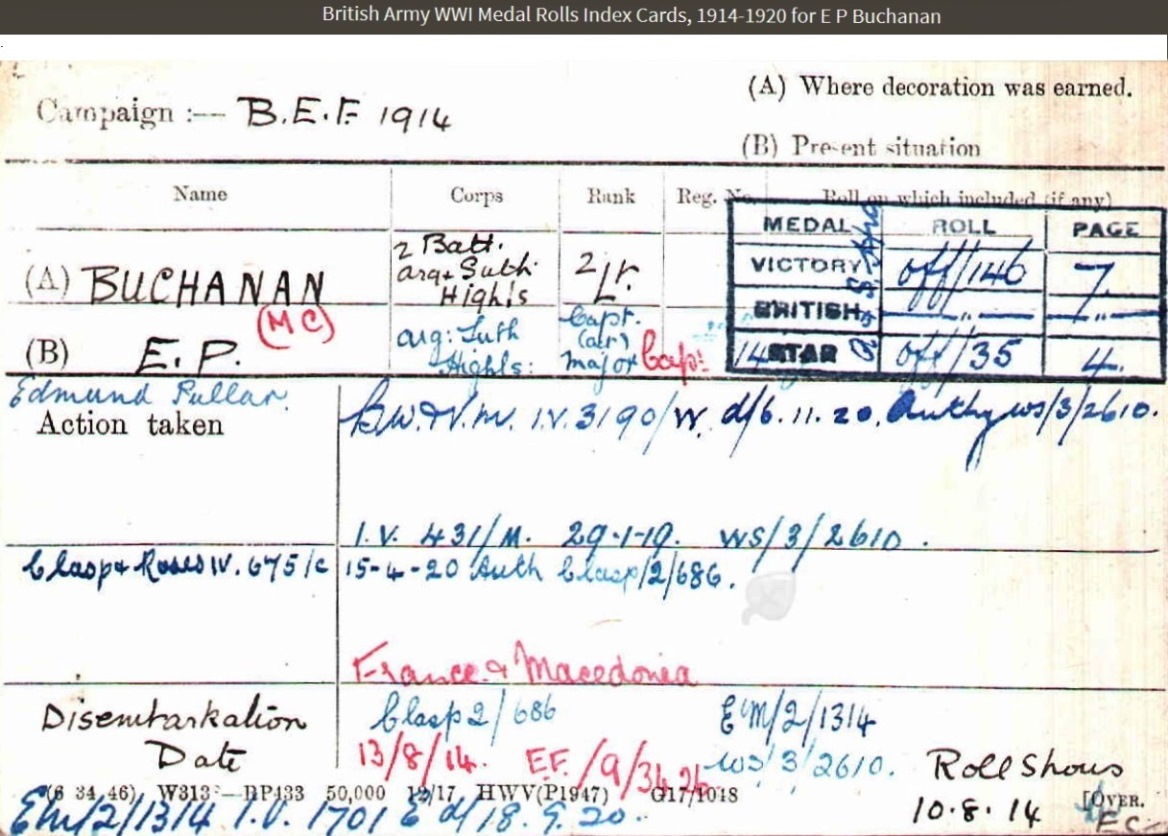 British Army WWI Medal Rolls Index Cards, 1914-1920 for E P Buchanan
Campaign :— B.E.F. 1914
(A) Where decoration was earned.
(B) Present situation
Name Corps Rank Reg. No. Roll on which included (if any)
MEDAL ROLL PAGE
VICTORY off/146 7
BRITISH —"— —"—
14 STAR off/35 4.
(A) BUCHANAN 2 Batt. Arg & Suth. Highl's 2/Lr.
(MC)
(B) E. P. Arg: Suth Highls: Capt. (a/r) Major Capt:
Edmund Pullar.
Action taken
B.W.&V.M. I.V. 3190/W. d/6.11.20. Authy ws/3/2610.
I.V. 431/M. 29-1-19. ws/3/2610.
Clasp & Roses IV. 675/c 15-4-20 Auth Clasp/2/686.
France & Macedonia
Disembarkation Date
Clasp 2/686 EM/2/1314
13/8/14. E.F./9/3426 ws/3/2610.
Roll Shows
10.8.14
(6 34 46) W313—RP433 50,000 12/17 HWV(P1947) G17/1048 [OVER.
EM/2/1314 I.V. 1701 E d/18.9.20. EC